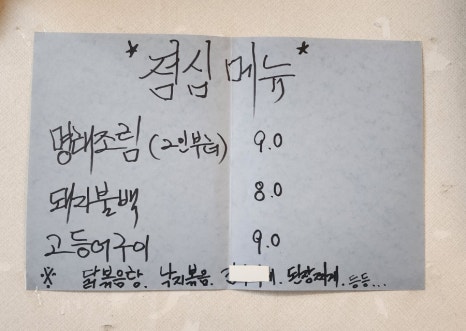 *점심 메뉴*
명태조림 (2인부터) 9.0
돼지불백 8.0
고등어구이 9.0
※ 닭볶음탕. 낙지볶음. 된장찌개. 등등...